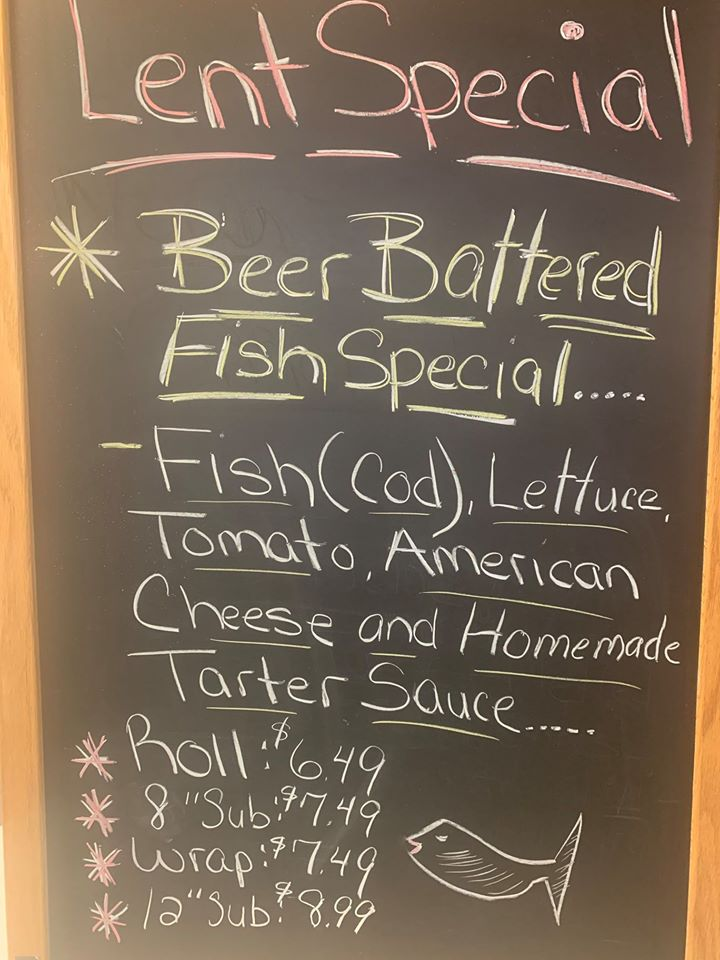 Lent Special
* Beer Battered
Fish Special.....
- Fish (Cod), Lettuce,
Tomato, American
Cheese and Homemade
Tarter Sauce.....
* Roll: $6.49
* 8" Sub: $7.49
* Wrap: $7.49
* 12" Sub: $8.99